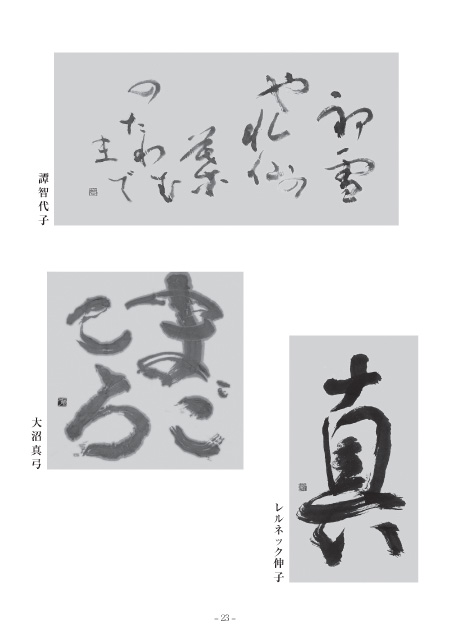 初雪
や水仙の
葉
のたわむ
まで
譚智代子
まご
ころ
大沼真弓
真
レルネック伸子
- 23 -